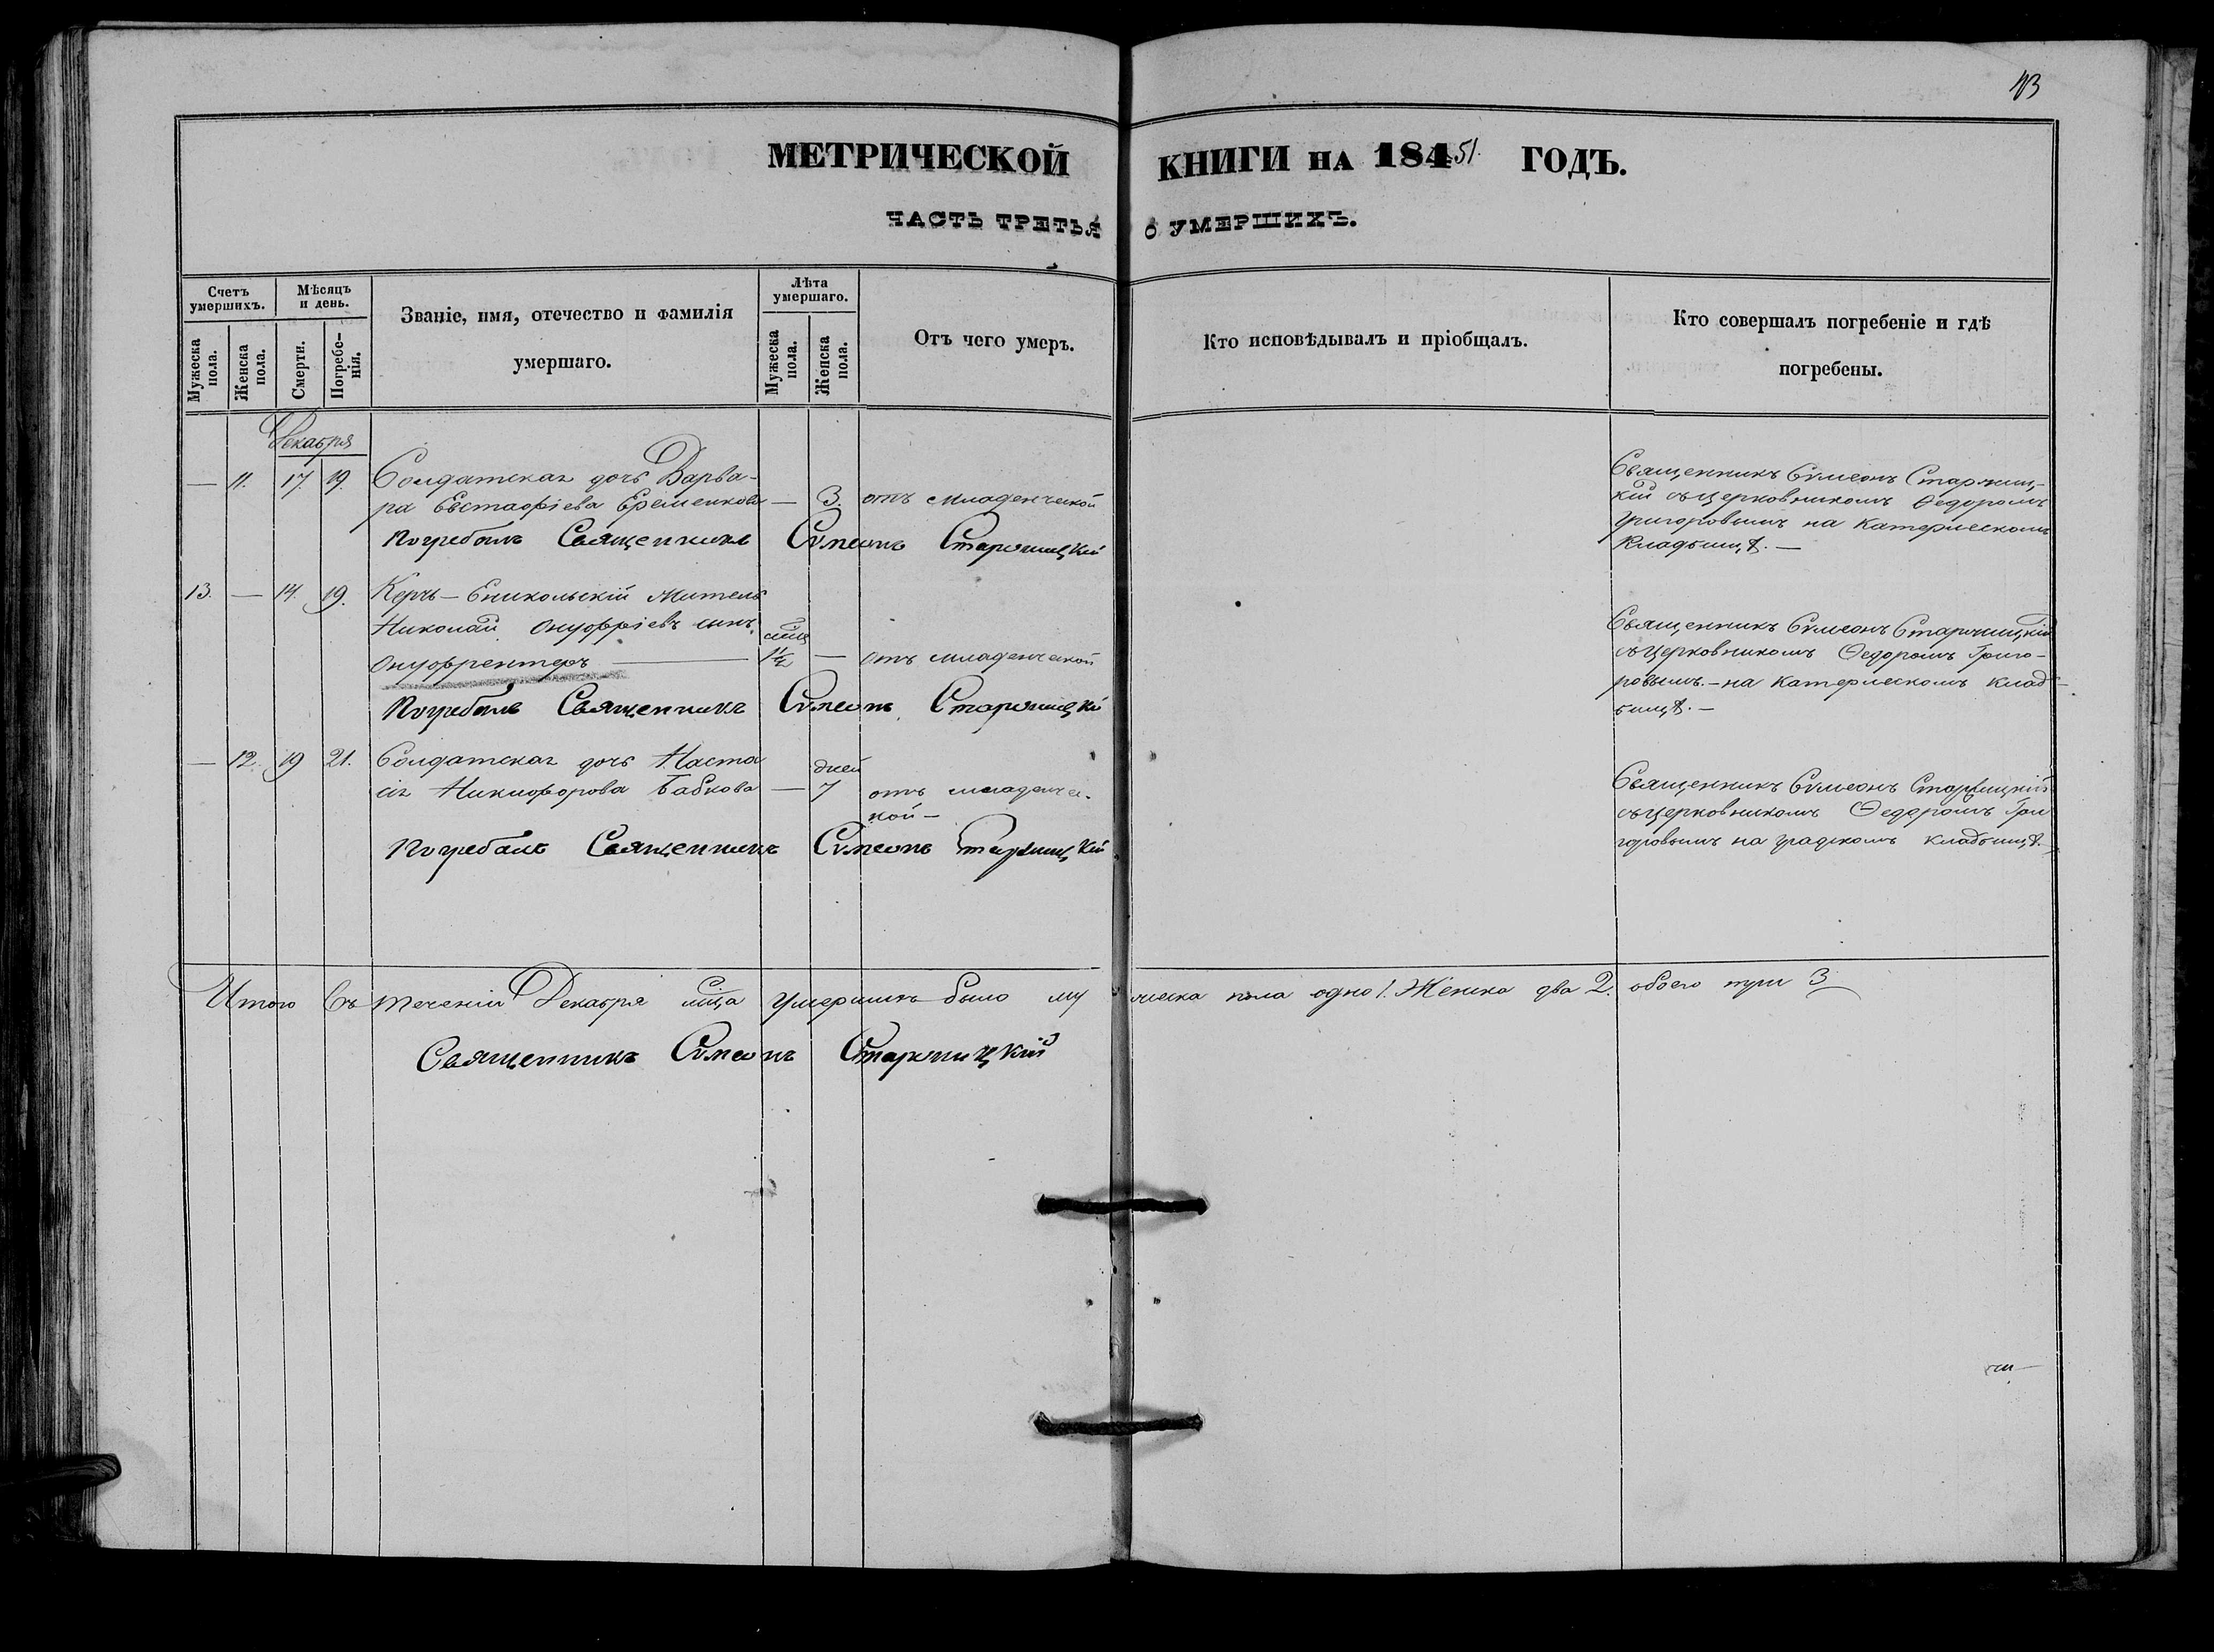 43
МЕТРИЧЕСКОЙ КНИГИ НА 184 51. ГОДЪ.
ЧАСТЬ ТРЕТЬЯ О УМЕРШИХЪ.
Счетъ умершихъ.
Мужеска пола.
Женска пола.
Мѣсяцъ и день.
Смерти.
Погребе-нія.
Званіе, имя, отечество и фамилія
умершаго.
Лѣта умершаго.
Мужеска пола.
Женска пола.
Отъ чего умеръ.
Кто исповѣдывалъ и пріобщалъ.
Кто совершалъ погребеніе и гдѣ
погребены.
Декабря
— 11. 17. 19. Солдатская дочь Варва-
ра Евстафіева Еременкова — 3. отъ младенческой
Погребалъ Священникъ Сѵмеонъ Старницкій
Священникъ Сѵмеонъ Старниц-
кій съ церковникомъ Ѳедоромъ
Григоровымъ на Катерлескомъ
Кладбищѣ. —
13. — 14. 19. Керчь-Еникольскій Житель
Николай Онуфріевъ сынъ мсц
Онуфрентеръ — 1½ — отъ младенческой
Погребалъ Священникъ Сѵмеонъ Старницкій
Священникъ Сѵмеонъ Старницкій
съ церковникомъ Ѳедоромъ Григо-
ровымъ. — на Катерлескомъ клад-
бищѣ. —
— 12. 19 21. Солдатская дочь Наста
сія Никифорова Бабкова — дней 7 отъ младенчес-
кой —
Погребалъ Священникъ Сѵмеонъ Старницкій
Священникъ Сѵмеонъ Старницкій
съ церковникомъ Ѳедоромъ Гри
горовымъ на градскомъ кладбищѣ. —
Итого Въ теченіи Декабря мца умершихъ было мужеска пола одно 1. Женска два 2. обоего три 3
Священникъ Сѵмеонъ Старницкій